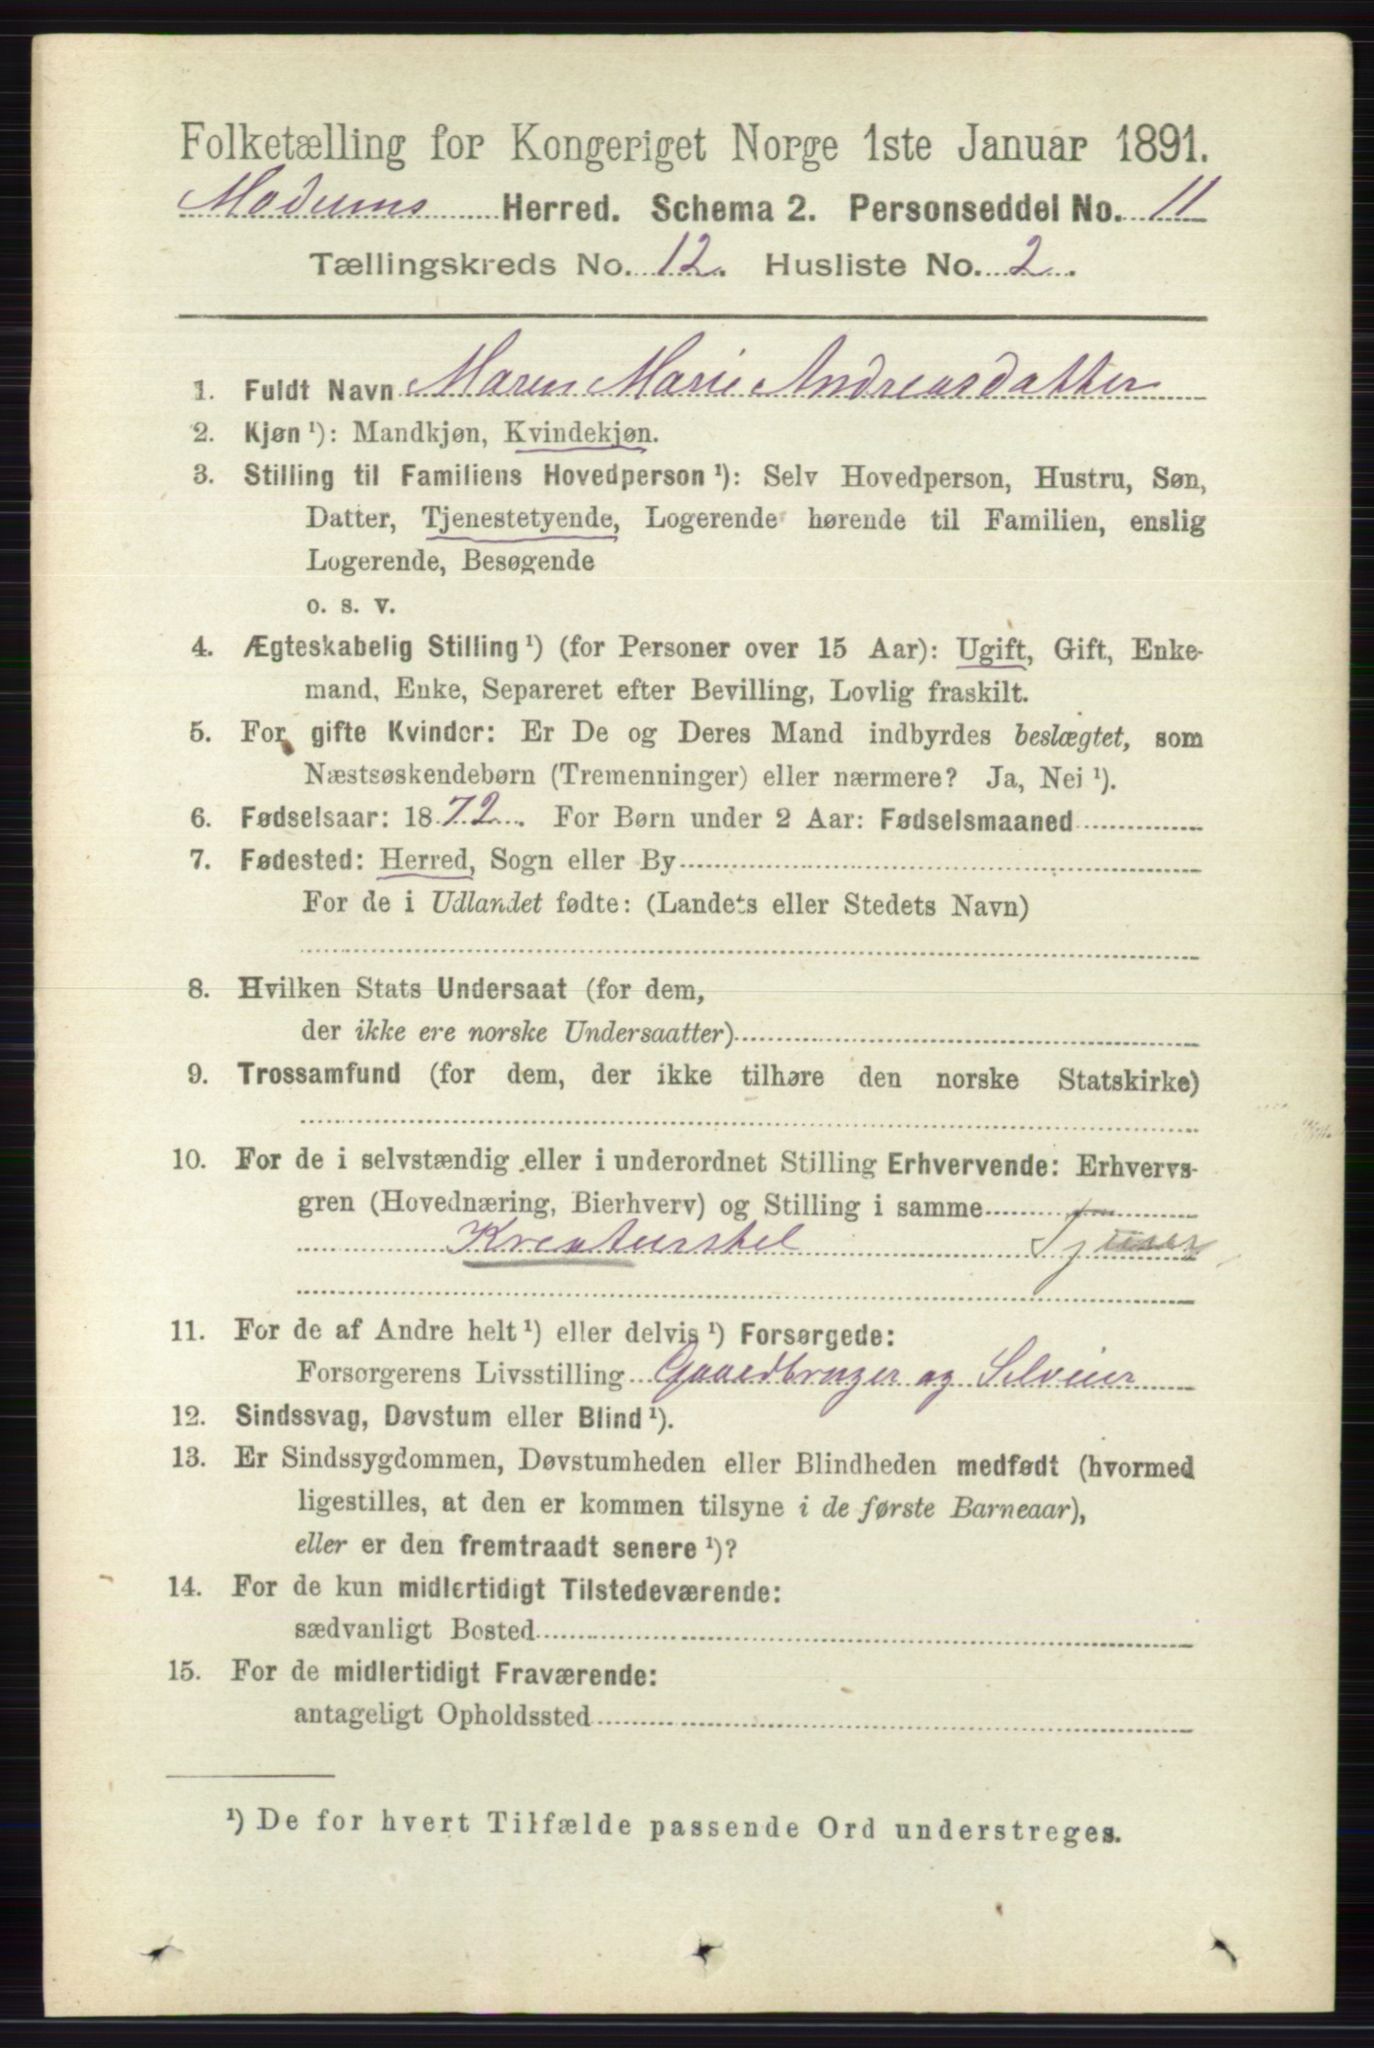 Folketælling for Kongeriget Norge 1ste Januar 1891.
Modums Herred. Schema 2. Personseddel No. 11
Tællingskreds No. 12. Husliste No. 2.
1. Fuldt Navn Maren Marie Andreasdatter
2. Kjøn ¹): Mandkjøn, Kvindekjøn.
3. Stilling til Familiens Hovedperson ¹): Selv Hovedperson, Hustru, Søn,
Datter, Tjenestetyende, Logerende hørende til Familien, enslig
Logerende, Besøgende
o. s. v.
4. Ægteskabelig Stilling ¹) (for Personer over 15 Aar): Ugift, Gift, Enke-
mand, Enke, Separeret efter Bevilling, Lovlig fraskilt.
5. For gifte Kvinder: Er De og Deres Mand indbyrdes beslægtet, som
Næstsøskendebørn (Tremenninger) eller nærmere? Ja, Nei ¹).
6. Fødselsaar: 1872. For Børn under 2 Aar: Fødselsmaaned
7. Fødested: Herred, Sogn eller By
For de i Udlandet fødte: (Landets eller Stedets Navn)
8. Hvilken Stats Undersaat (for dem,
der ikke ere norske Undersaatter)
9. Trossamfund (for dem, der ikke tilhøre den norske Statskirke)
10. For de i selvstændig eller i underordnet Stilling Erhvervende: Erhvervs-
gren (Hovednæring, Bierhverv) og Stilling i samme
Kreaturstel
11. For de af Andre helt ¹) eller delvis ¹) Forsørgede:
Forsørgerens Livsstilling Gaardbruger og Selveier
12. Sindssvag, Døvstum eller Blind ¹).
13. Er Sindssygdommen, Døvstumheden eller Blindheden medfødt (hvormed
ligestilles, at den er kommen tilsyne i de første Barneaar),
eller er den fremtraadt senere ¹)?
14. For de kun midlertidigt Tilstedeværende:
sædvanligt Bosted
15. For de midlertidigt Fraværende:
antageligt Opholdssted
¹) De for hvert Tilfælde passende Ord understreges.